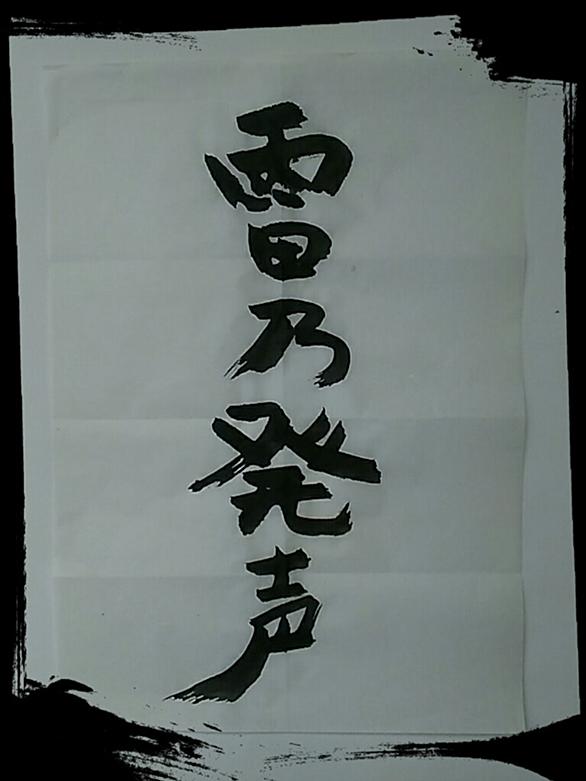 雷乃発声